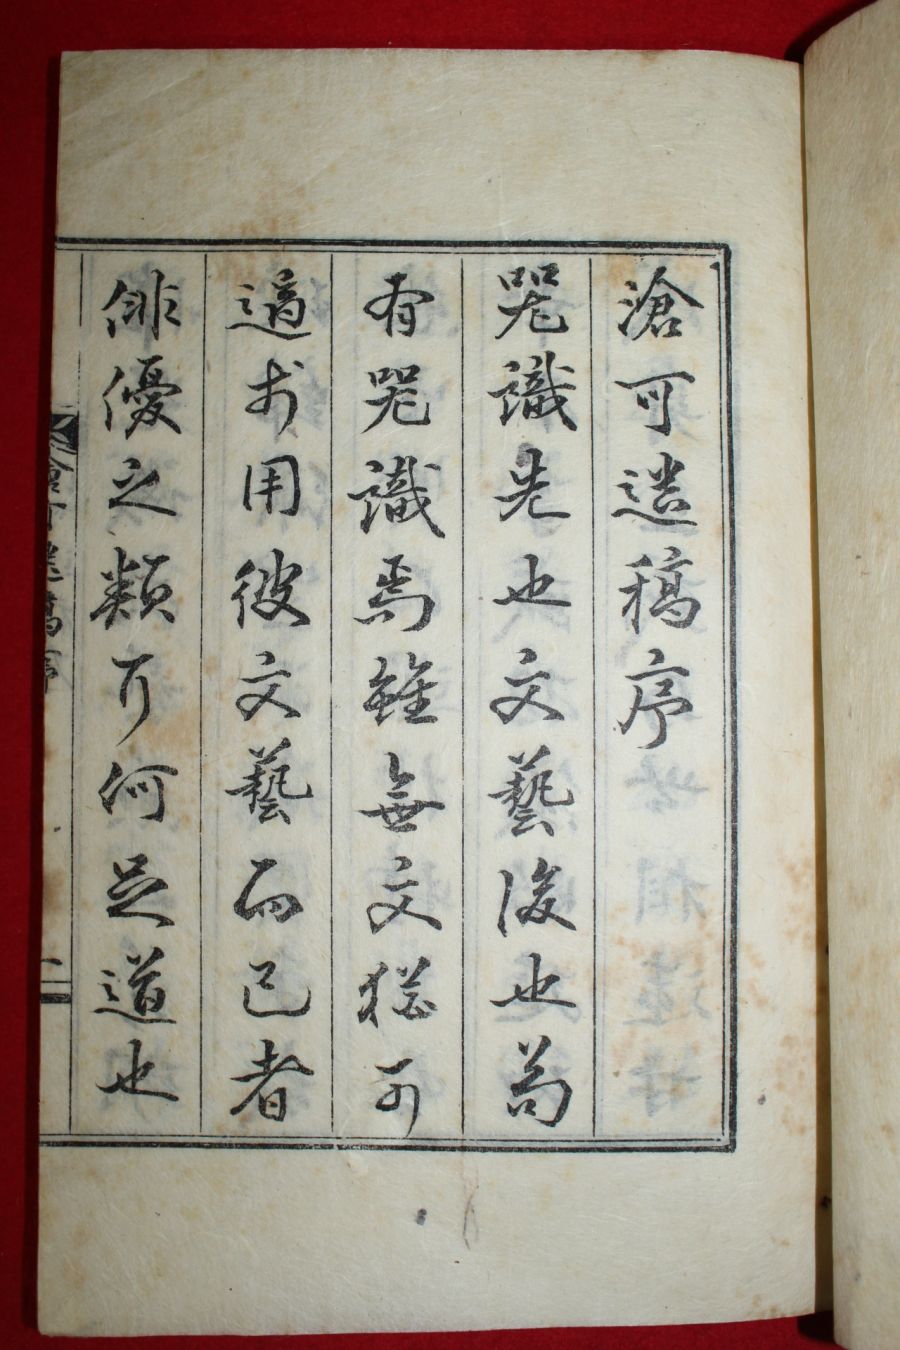 滄可遺稿序
器識先也文藝後也苟
有器識焉雖無文猶可
適於用彼文藝而已者
俳優之類耳何足道也
滄可遺稿序